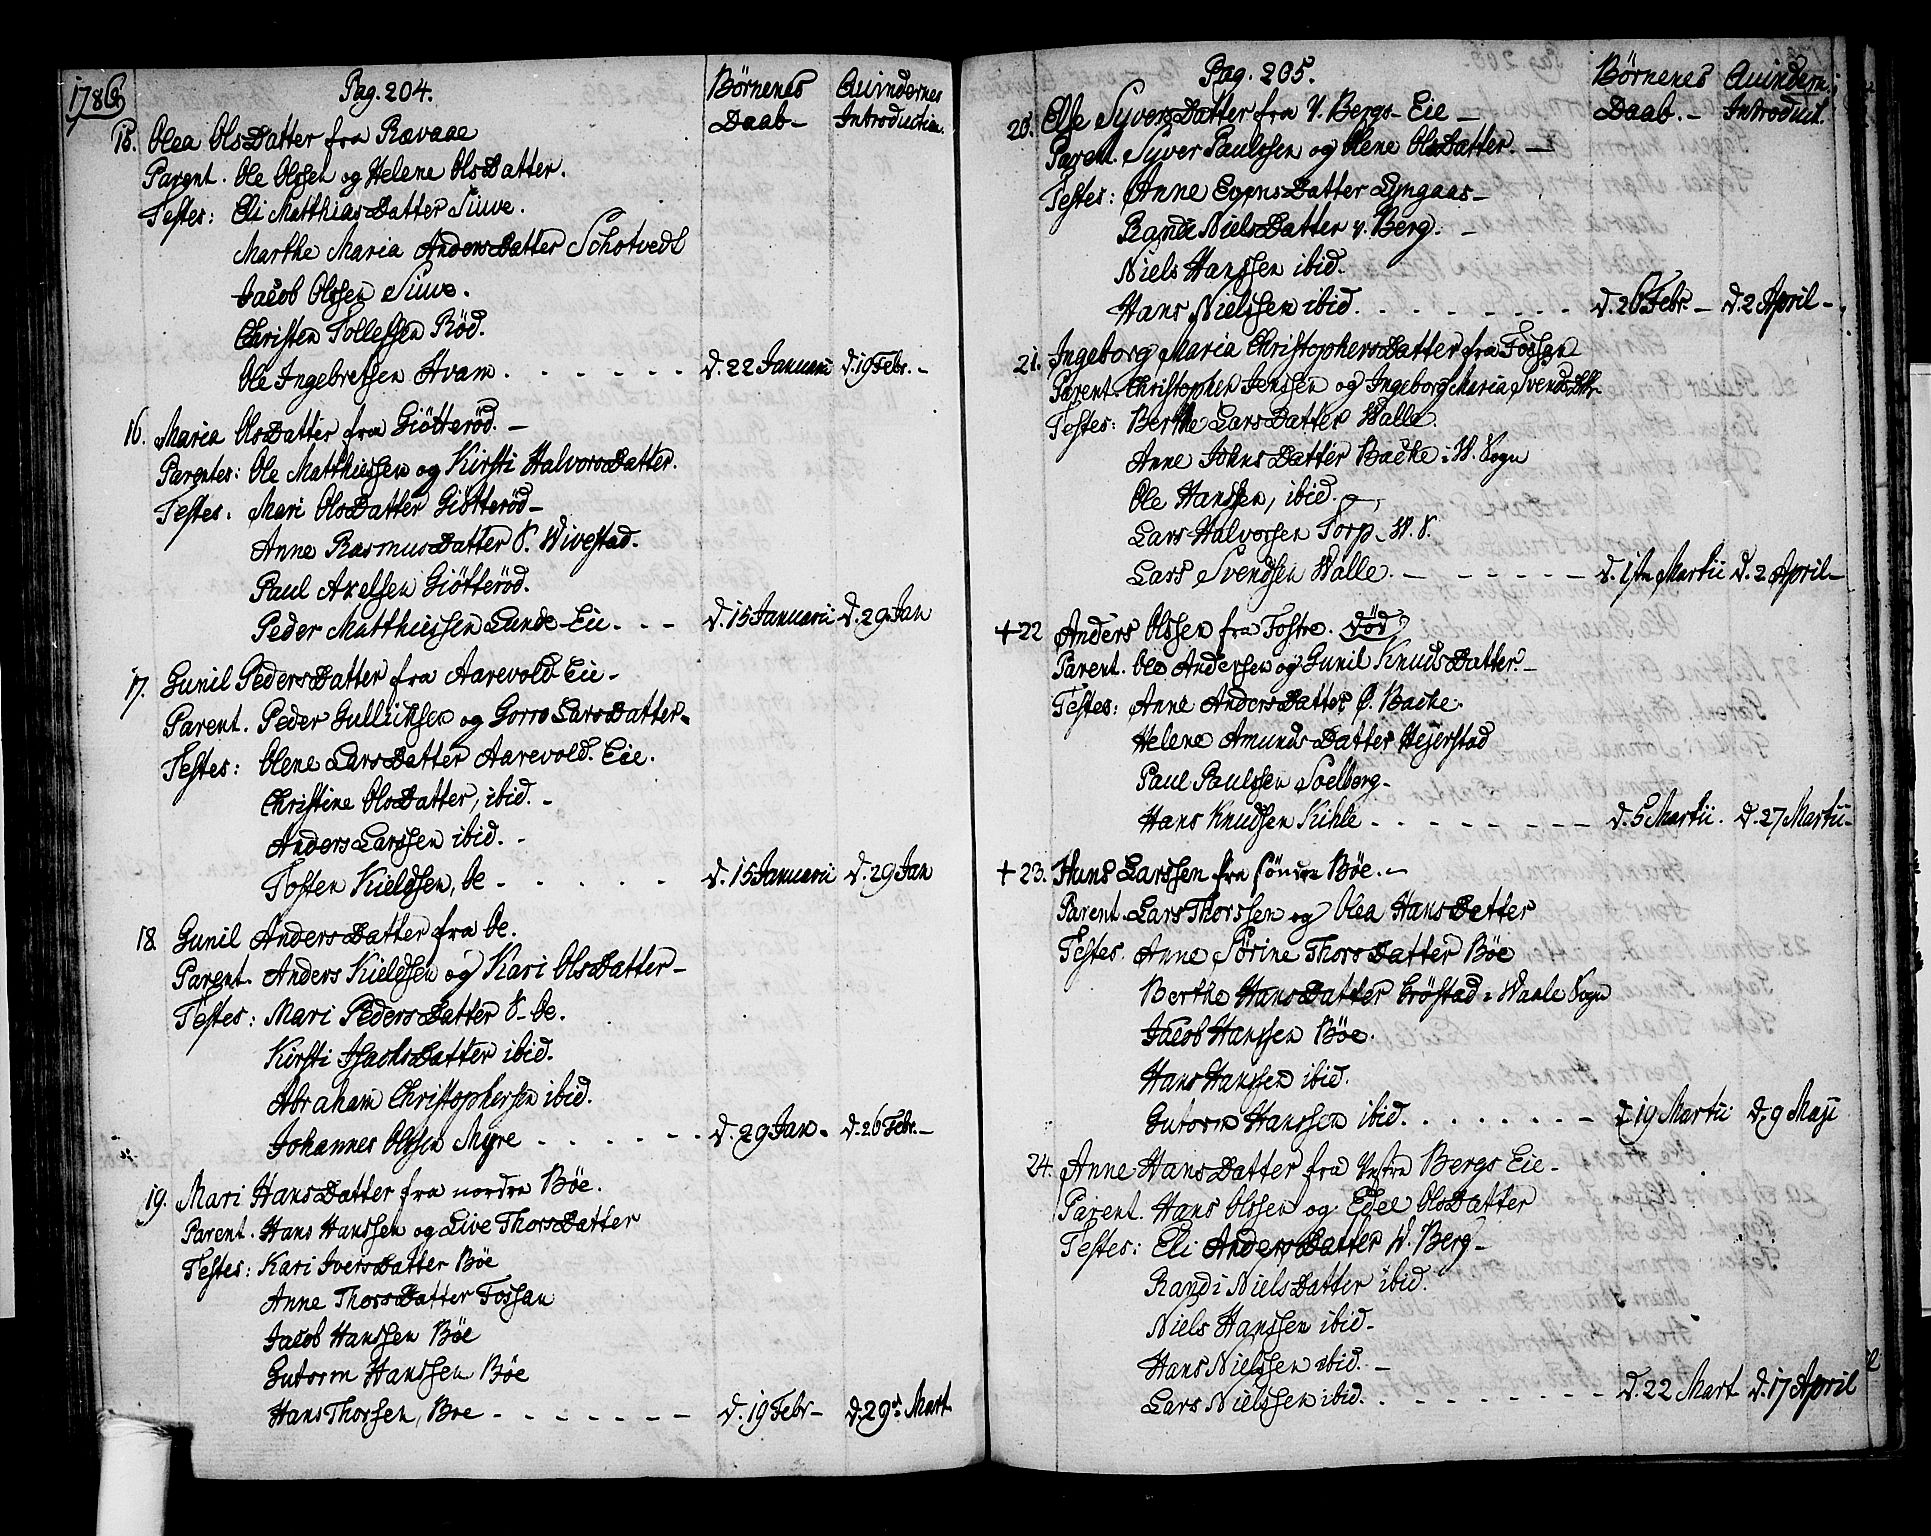 1786
Pag. 204.
Børnenes Daab -
Qvindernes Introduction.
15. Olea OlsDatter fra Rævaae
Parent. Ole Olssen og Helene OlsDatter.
Testes: Eli MatthiasDatter Siuve.
Marthe Maria AndersDatter Schotvedt
Jacob Olssen Siuve.
Christen Tollefssen Rød.
Ole Ingebretsen Hvam . . . . . . . d. 22 Januarii d. 19 Febr. -
16. Maria OlsDatter fra Giötteröd. -
Parentes: Ole Matthiessen og Kirsti HalvorsDatter.
Testes. Mari OlsDatter Giötteröd -
Anne RasmusDatter S. Wivestad.
Paul Axelsen Giötteröd.
Peder Matthiessen Lunde-Eie. - - d. 15 Januarii d. 29 Jan
17. Gunil PedersDatter fra Aarevold Eie -
Parent. Peder Gullichsen og Gorro LarsDatter -
Testes: Olene LarsDatter Aarevold. Eie.
Christine OlsDatter, ibid. -
Anders Larssen ibid. -
Tosten Kieldsen, De - . . . . . d. 15 Januarii d. 29 Jan
18. Gunil AndersDatter fra De.
Parent. Anders Kieldsen og Kari OlsDatter -
Testes: Mari PedersDatter S. De.
Kirsti IsachsDatter ibid.
Abraham Christophersen ibid.
Johannes Olssen Myre . . . . . . d. 29 Jan. d. 26 Febr. -
19. Mari HansDatter fra nordre Bøe.
Parent. Hans Hanssen og Live ThorsDatter
Testes: Kari IversDatter Bøe
Anne ThorsDatter Fossan
Jacob Hanssen Bøe
Gutorm Hanssen Bøe
Hans Thorssen, Bøe - - - - - - - d. 19 Febr - d. 29 Mart.
Pag. 205.
Børnenes Daab. -
Qvindern: Introduct.
20. Else SyversDatter fra V. Bergs-Eie -
Parent. Syver Paulssen og Olene OlsDatter. -
Testes: Anne EvensDatter Lyngaas -
Randi NielsDatter v. Berg. -
Niels Hanssen ibid.
Hans Nielssen ibid. . . . . . . . . d. 26 Febr. - d. 2 April -
21. Ingeborg Maria ChristophersDatter fra Fossan
Parent. Christopher Jenssen og Ingeborg Maria Svends Dtr.
Testes: Berthe LarsDatter Walle.
Anne JohnsDatter Backe i W. Sogn
Ole Hanssen, ibid.
Lars Halvorsen Torp. W. S.
Lars Svendsen Walle. - - - - - d. 1ste Martii d. 2 April -
+ 22 Anders Olssen fra Fostre. død.
Parent. Ole Anderssen og Gunil KnudsDatter. -
Testes: Anne AndersDatter Ø. Backe.
Helene AmundsDatter Hejerstad
Paul Paulssen Soelberg -
Hans Knudsen Kihle - - - - - - - - d. 5 Martii. d. 27 Martii -
+ 23. Hans Larssen fra söndre Bøe. -
Parent. Lars Thorssen og Olea HansDatter
Testes. Anne Sörine ThorsDatter Bøe
Berthe HansDatter Bröstad i Waale Sogn
Jacob Hanssen Bøe.
Hans Hanssen ibid.
Gutorm Hanssen ibid. . . . . . . . d. 19 Martii d. 9 Maji
24. Anne HansDatter fra Vestre Bergs Eie -
Parent. Hans Olssen og Edel OlsDatter
Testes: Eli AndersDatter W. Berg -
Randi NielsDatter ibid.
Niels Hanssen ibid -
Hans Nielssen ibid. -
Lars Nielssen ibid. . . . . . . . - d. 22 Mart d. 17 April